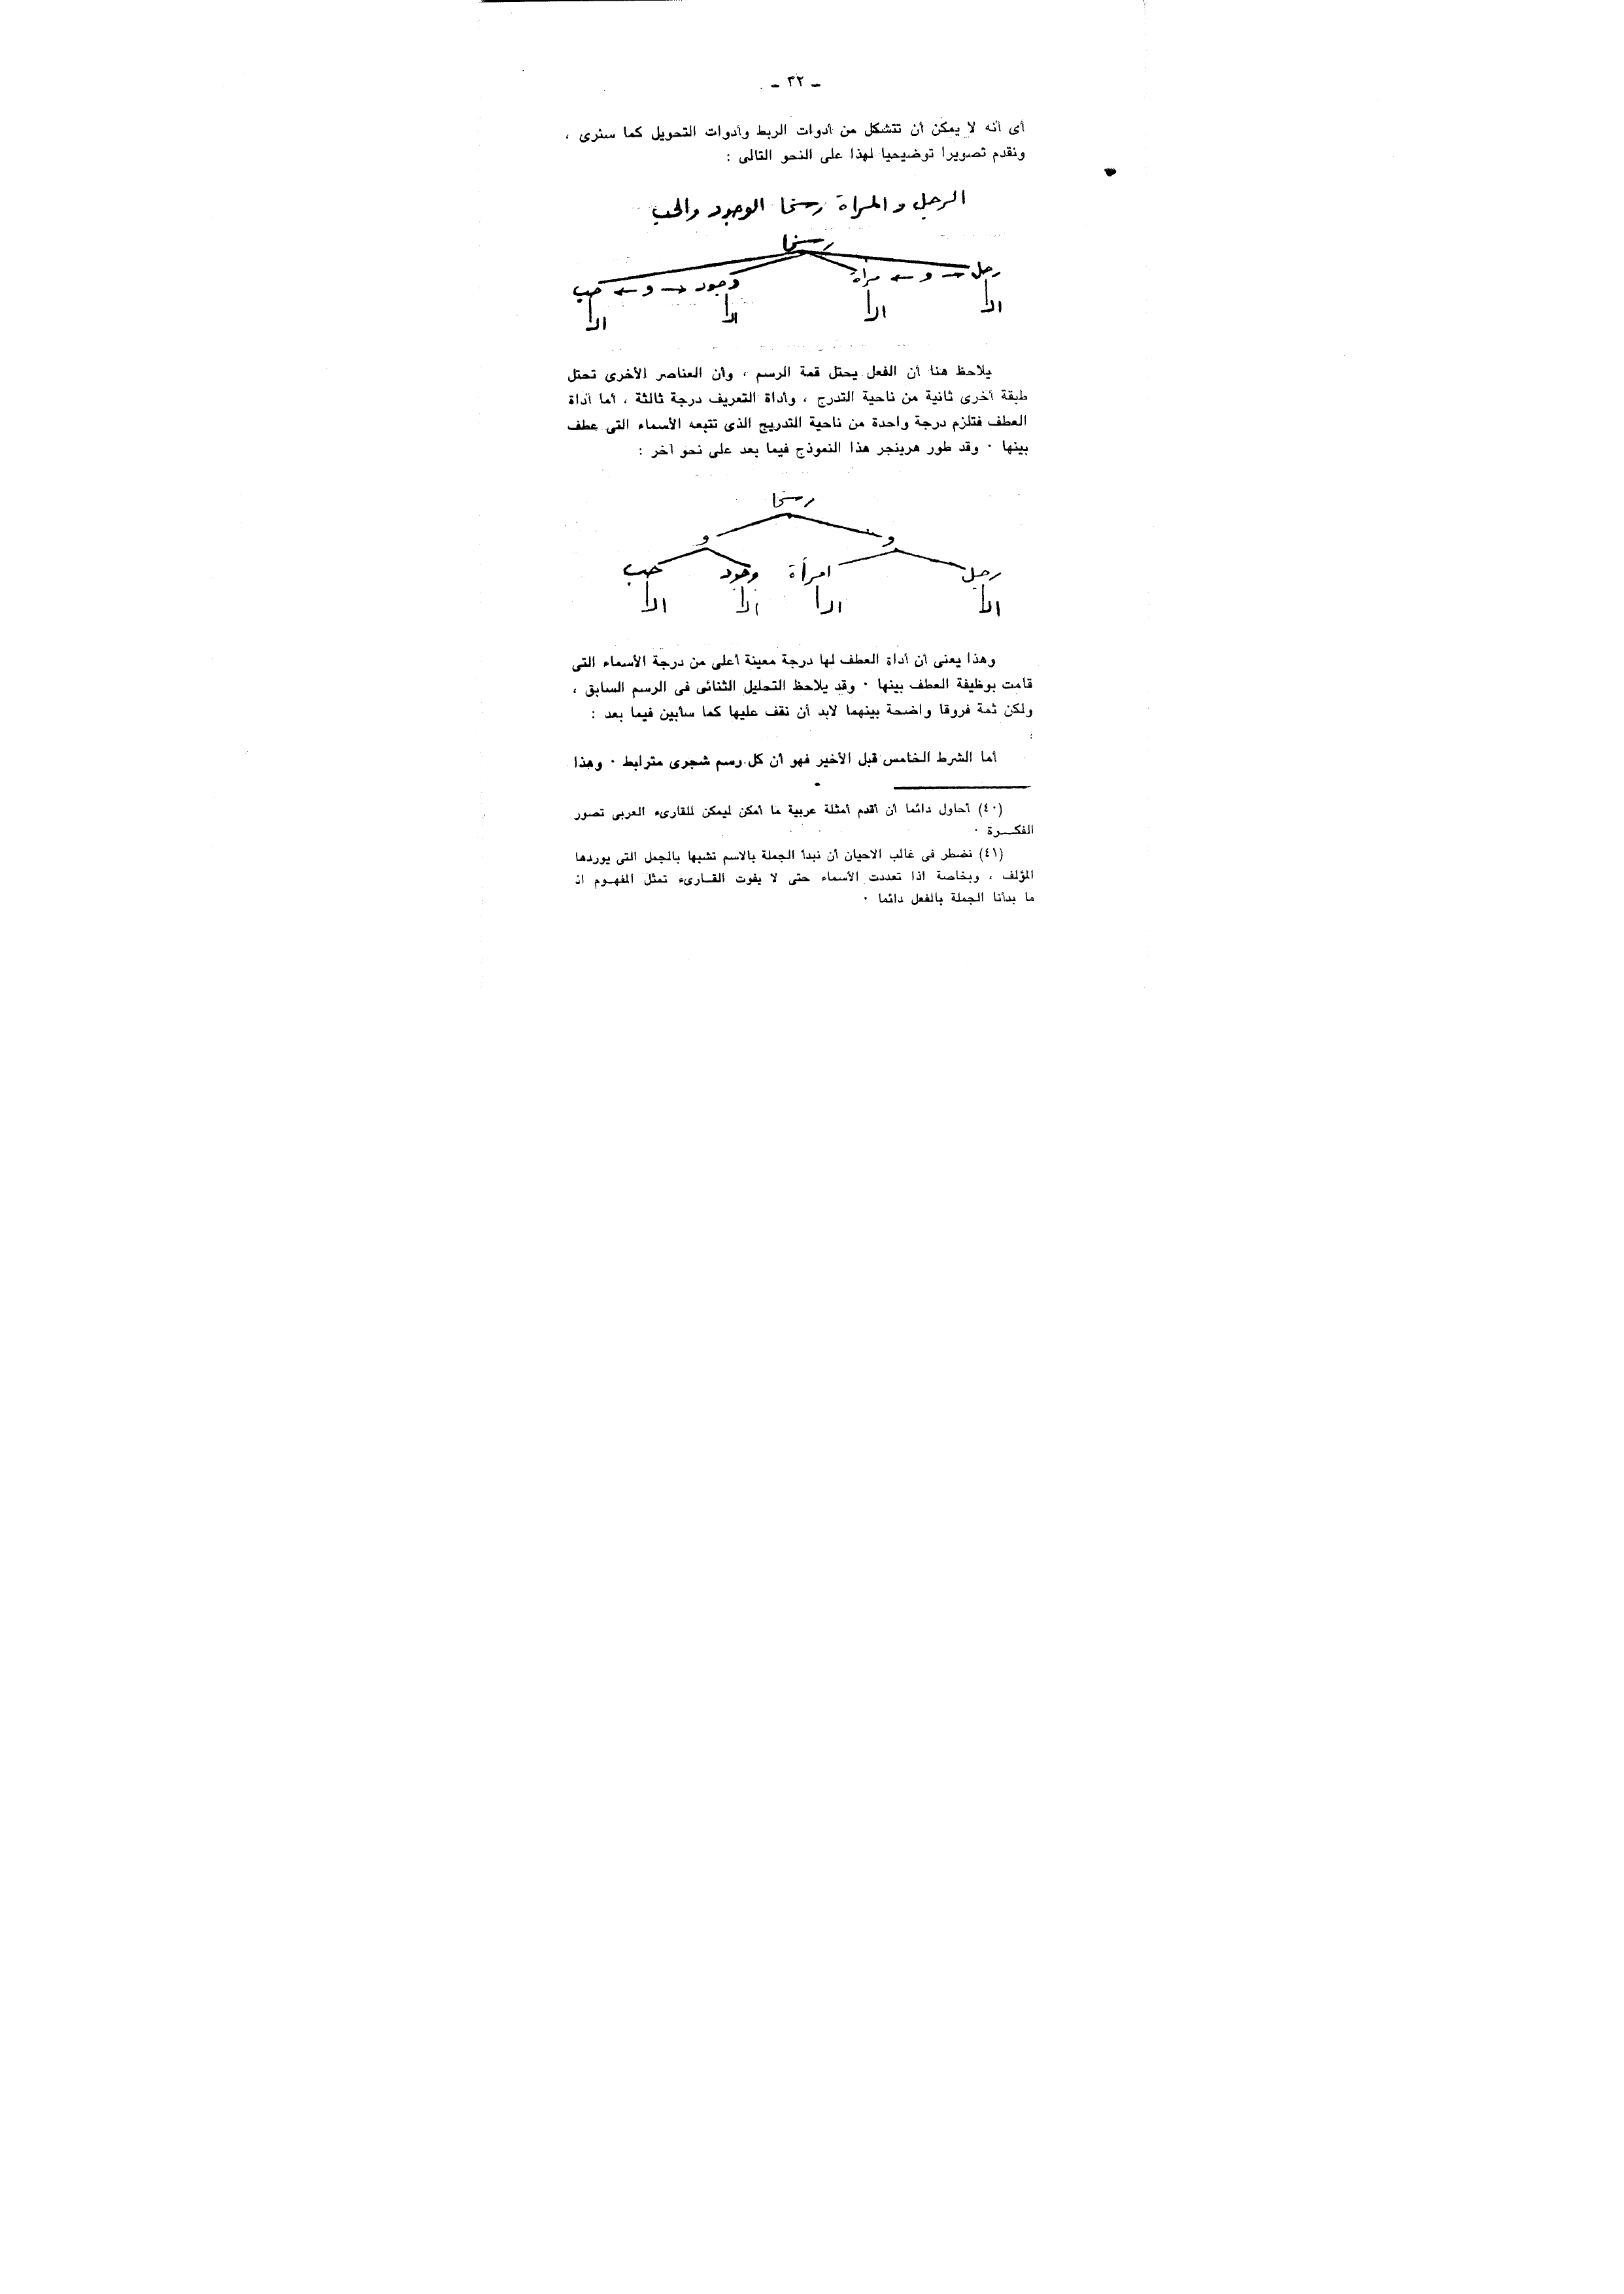 ـ ٣٢ ـ
أى أنه لا يمكن أن تتشكل من أدوات الربط وأدوات التحويل كما سنرى ،
ونقدم تصويرا توضيحيا لهذا على النحو التالى :
الرجل و المرأة رسخا الوجود والحب
رسخا
رجل → و ← مرأة وجود → و ← حب
الـ الـ الـ الـ
يلاحظ هنا أن الفعل يحتل قمة الرسم ، وأن العناصر الأخرى تحتل
طبقة أخرى ثانية من ناحية التدرج ، وأداة التعريف درجة ثالثة ، أما أداة
العطف فتلزم درجة واحدة من ناحية التدريج الذى تتبعه الأسماء التى عطف
بينها ٠ وقد طور هرينجر هذا النموذج فيما بعد على نحو آخر :
رسخا
و و
رجل امرأة وجود حب
الـ الـ الـ الـ
وهذا يعنى أن أداة العطف لها درجة معينة أعلى من درجة الأسماء التى
قامت بوظيفة العطف بينها ٠ وقد يلاحظ التحليل الثنائى فى الرسم السابق ،
ولكن ثمة فروقا واضحة بينهما لابد أن نقف عليها كما سأبين فيما بعد :
أما الشرط الخامس قبل الأخير فهو أن كل رسم شجرى مترابط ٠ وهذا
(٤٠) أحاول دائما أن أقدم أمثلة عربية ما أمكن ليمكن للقارىء العربى تصور
الفكـــرة ٠
(٤١) نضطر فى غالب الاحيان أن نبدأ الجملة بالاسم تشبها بالجمل التى يوردها
المؤلف ، وبخاصة اذا تعددت الأسماء حتى لا يفوت القــارىء تمثل المفهــوم اذ
ما بدأنا الجملة بالفعل دائما ٠